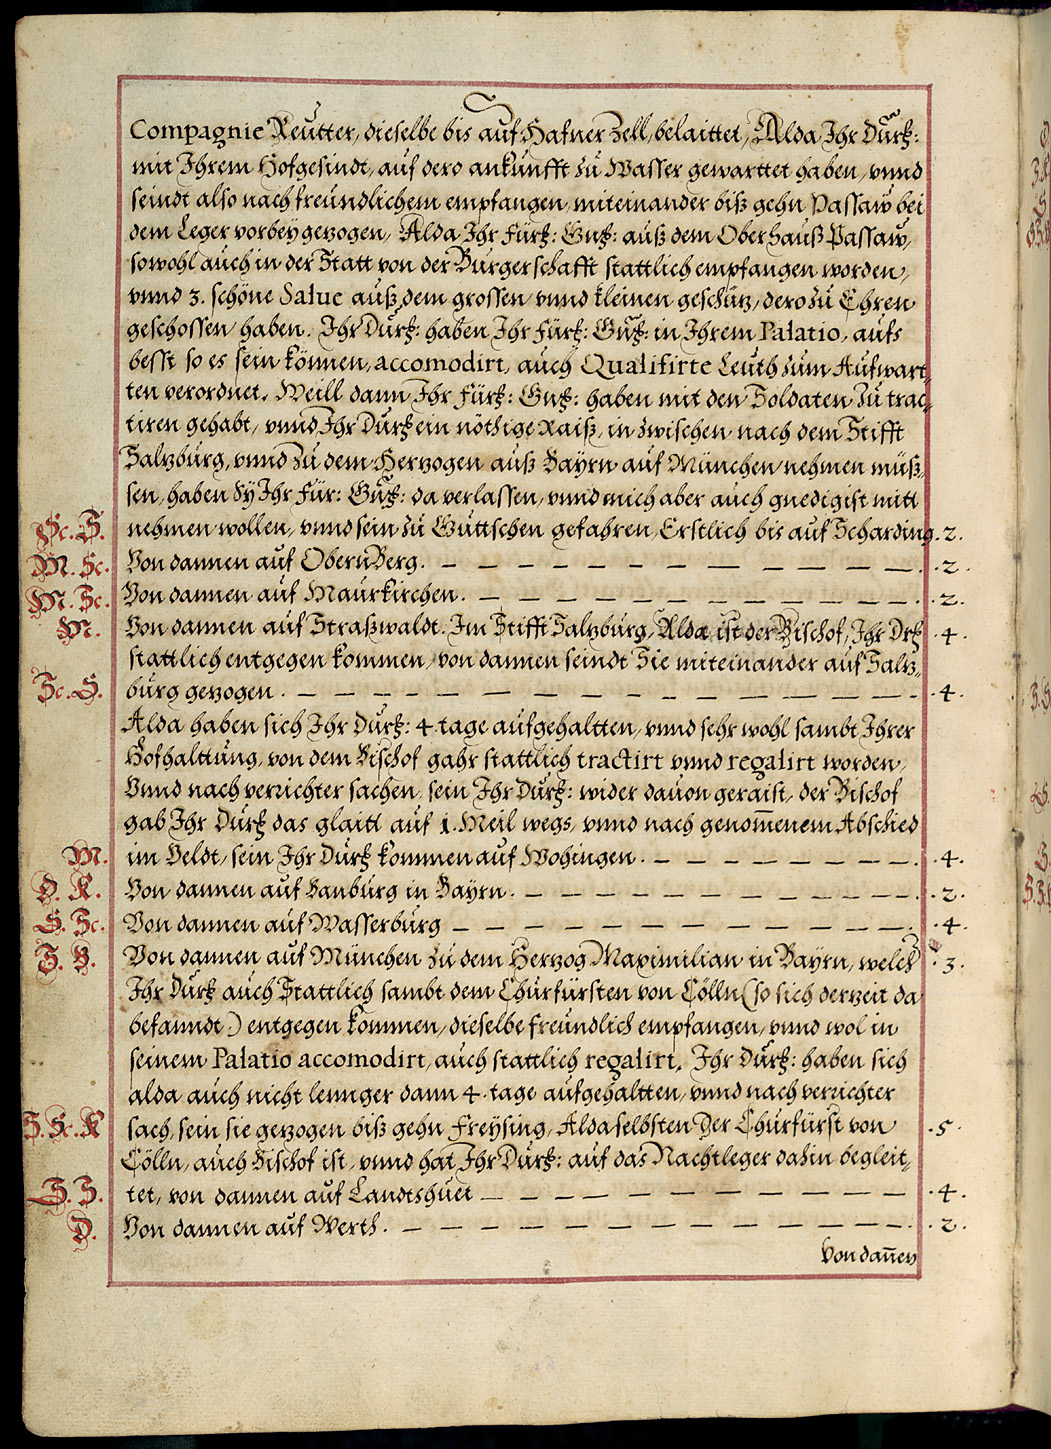 Compagnie Reütter, dieselbe bis auf Hafner Zell, belaittet, Alda Ihr Dürk:
mit Ihrem Hofgesindt, auf dero ankunfft zü Wasser gewarttet haben, vnnd
seindt also nach freündlichem empfangen, miteinander biß gehn Passaw bei
dem Leger vorbey gezogen, Alda Ihr Fürk: Gnk: auß dem Oberhauß Passaw,
sowohl auch in der Statt von der Burgerschafft stattlich empfangen worden,
vnnd 3. schöne Salue auß dem grossen vnnd kleinen geschütz, dero zü Ehren
geschossen haben. Ihr Dürk: haben Ihr Fürk: Gnk: in Ihrem Palatio, aufs
besst so es sein können, accomodirt, auch Qualifirte Leüth züm Aufwart,
ten verordnet. Weill dann Ihr Fürk: Gnk: haben mit den Soldaten zü trac,
tiren gehabt, vnnd Ihr Dürk ein nöthige Raiß, in zwischen nach dem Stifft
Saltzbürg, vnnd zü dem Hertzogen auß Bayrn auf München nehmen müß,
sen, haben Sÿ Ihr Für: Gnk: da verlassen, vnnd mich aber auch gnedigist mitt
Sc. S. nehmen wollen, vnnd sein zü Güttschen gefahren, Erstlich bis auf Scharding .2.
M. Sc. Von dannen auf Obernberg. — — — — — — — — — — .2.
M. Sc. Von dannen auf Maurkirchen. — — — — — — — — — — .2.
M. Von dannen auf Straßwaldt. Im Stifft Saltzbürg, Alda ist der Bischof, Ihr Drk .4.
stattlich entgegen kommen, von dannen seindt Sie miteinander auf Saltz,
Sc. S. bürg gezogen. — — — — — — — — — — — — — .4.
Alda haben sich Ihr Dürk: 4 tage aufgehaltten, vnnd sehr wohl sambt Ihrer
Hofhalttüng, von dem Bischof gahr stattlich tractirt vnnd regalirt worden,
Vnnd nach verrichter sachen, sein Ihr Dürk: wider dauon geraist, der Bischof
gab Ihr Dürk das glaitt auf 1. Meil wegs, vnnd nach genom̄enem Abschied
M. im Veldt, sein Ihr Dürk kommen auf Wohingen. — — — — — — — — .4.
D. K. Von dannen auf Banbürg in Bayrn. — — — — — — — — — — .2.
S. Sc. Von dannen auf Wasserbürg — — — — — — — — — — — — .4.
S. B. Von dannen auf München zü dem Hertzog Maximilian in Bayrn, welch .3.
Ihr Dürk auch Stattlich sambt dem Chürfürsten von Cölln (so sich derzeit da
befanndt) entgegen kommen, dieselbe freündlich empfangen, vnnd wol in
seinem Palatio accomodirt, auch stattlich regalirt. Ihr Dürk: haben sich
alda auch nicht lenger dann 4. tage aufgehaltten, vnnd nach verrichter
S. Sc. K sach, sein sie gezogen biß gehn Freysing, Aldaselbsten der Chürfürst von .5.
Cölln, auch Bischof ist, vnnd hat Ihr Dürk: auf das Nachtleger dahin begleit,
S. S. tet, von dannen auf Landtshuet — — — — — — — — — .4.
D. Von dannen auf Werth. — — — — — — — — — — — — — .2.
Von dan̄en